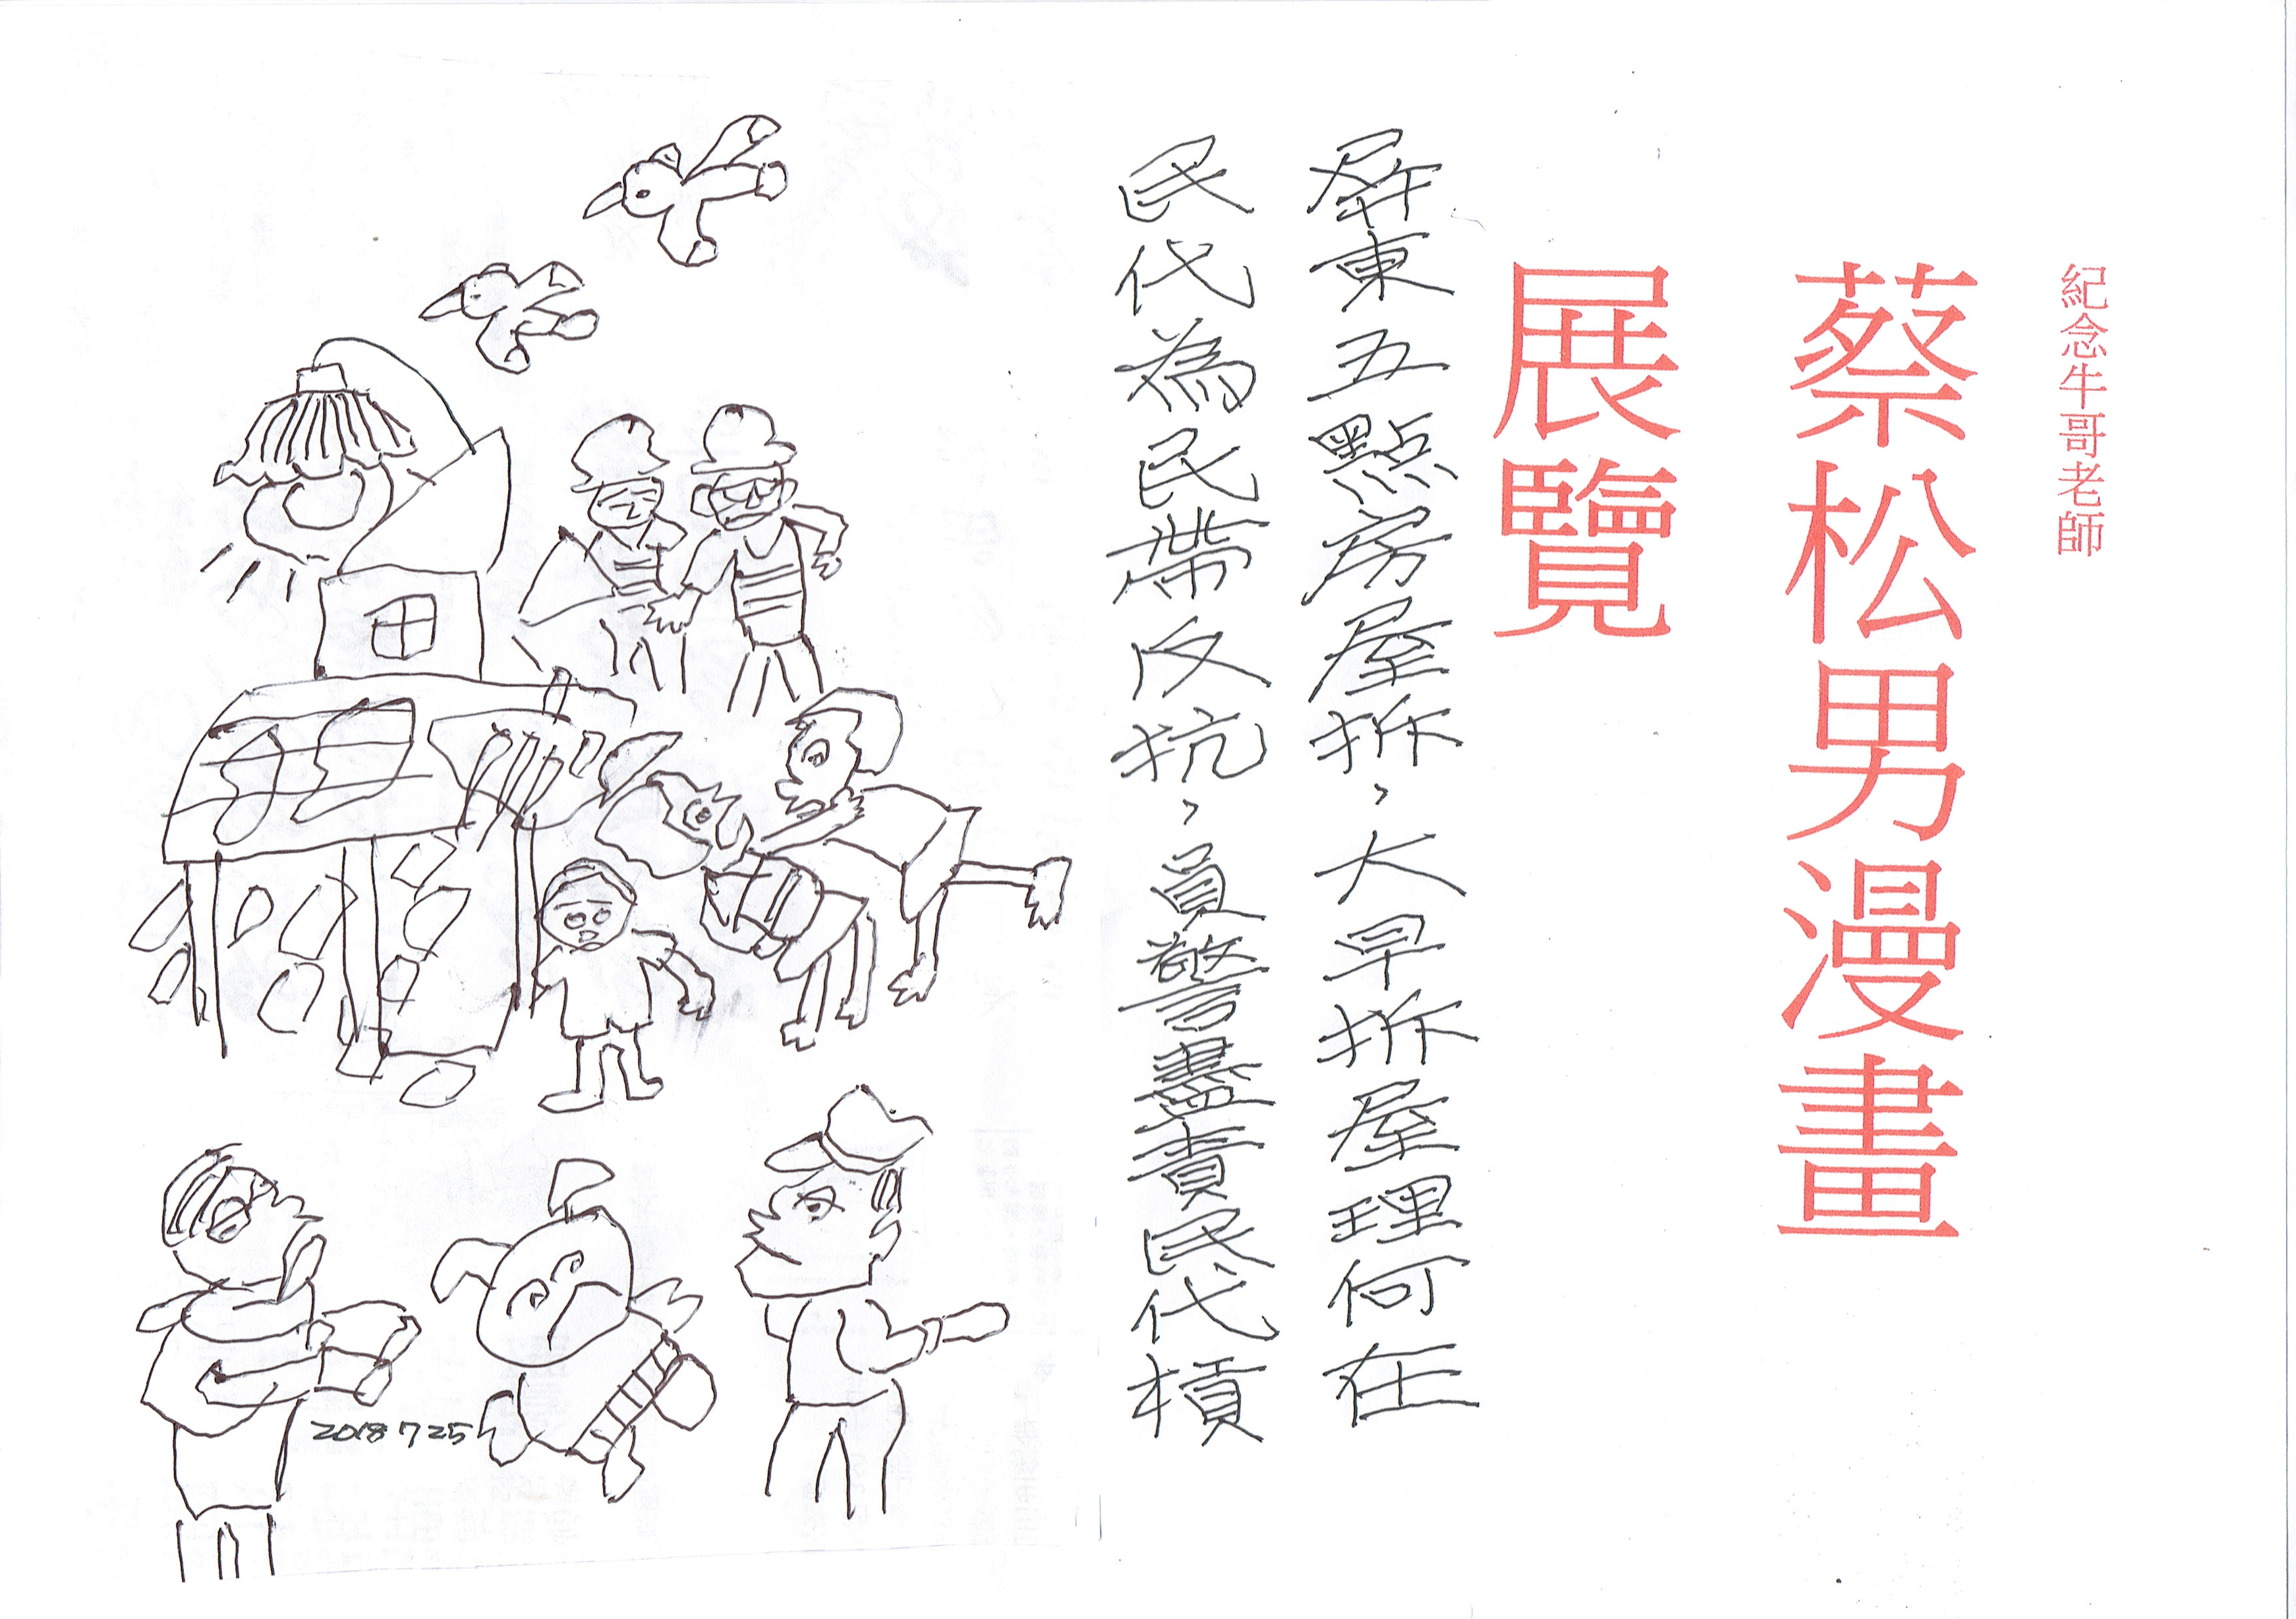 紀念牛哥老師
蔡松男漫畫
展覽
屏東五點房屋拆，大早拆屋理何在
民代為民帶反抗，員警盡責民代槓
2018 7 25